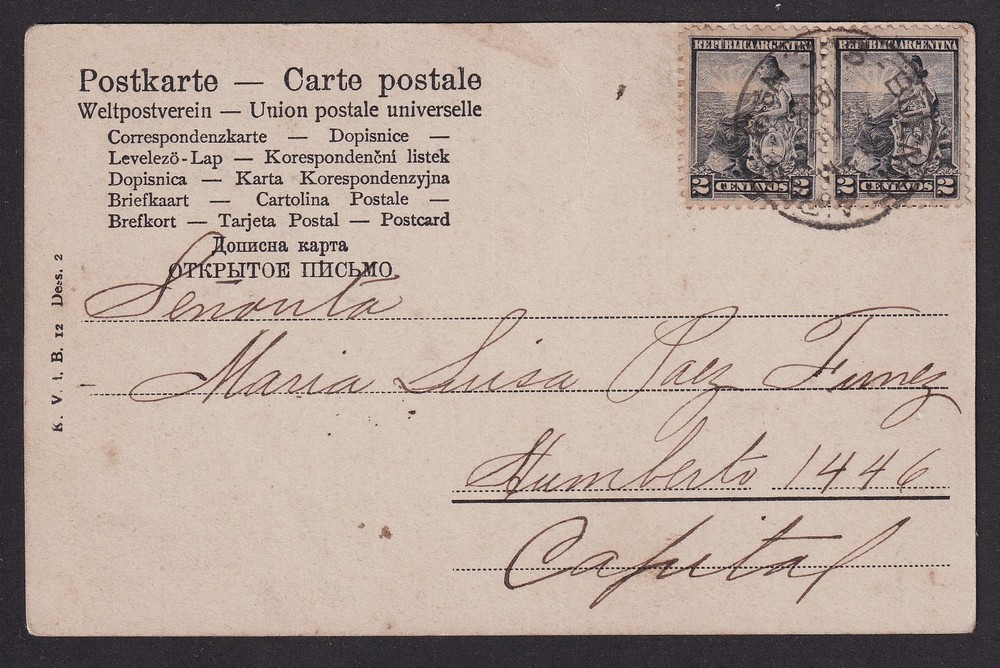 Postkarte — Carte postale
Weltpostverein — Union postale universelle
Correspondenzkarte — Dopisnice —
Levelező-Lap — Korespondenční listek
Dopisnica — Karta Korespondenzyjna
Briefkaart — Cartolina Postale —
Brefkort — Tarjeta Postal — Postcard
Дописна карта
ОТКРЫТОЕ ПИСЬМО
REPÚBLICA ARGENTINA
2 CENTAVOS 2
REPÚBLICA ARGENTINA
2 CENTAVOS 2
Señorita
Maria Luisa Paez Funez
Humberto 1446
Capital
K. V. i. B. 12 Dess. 2